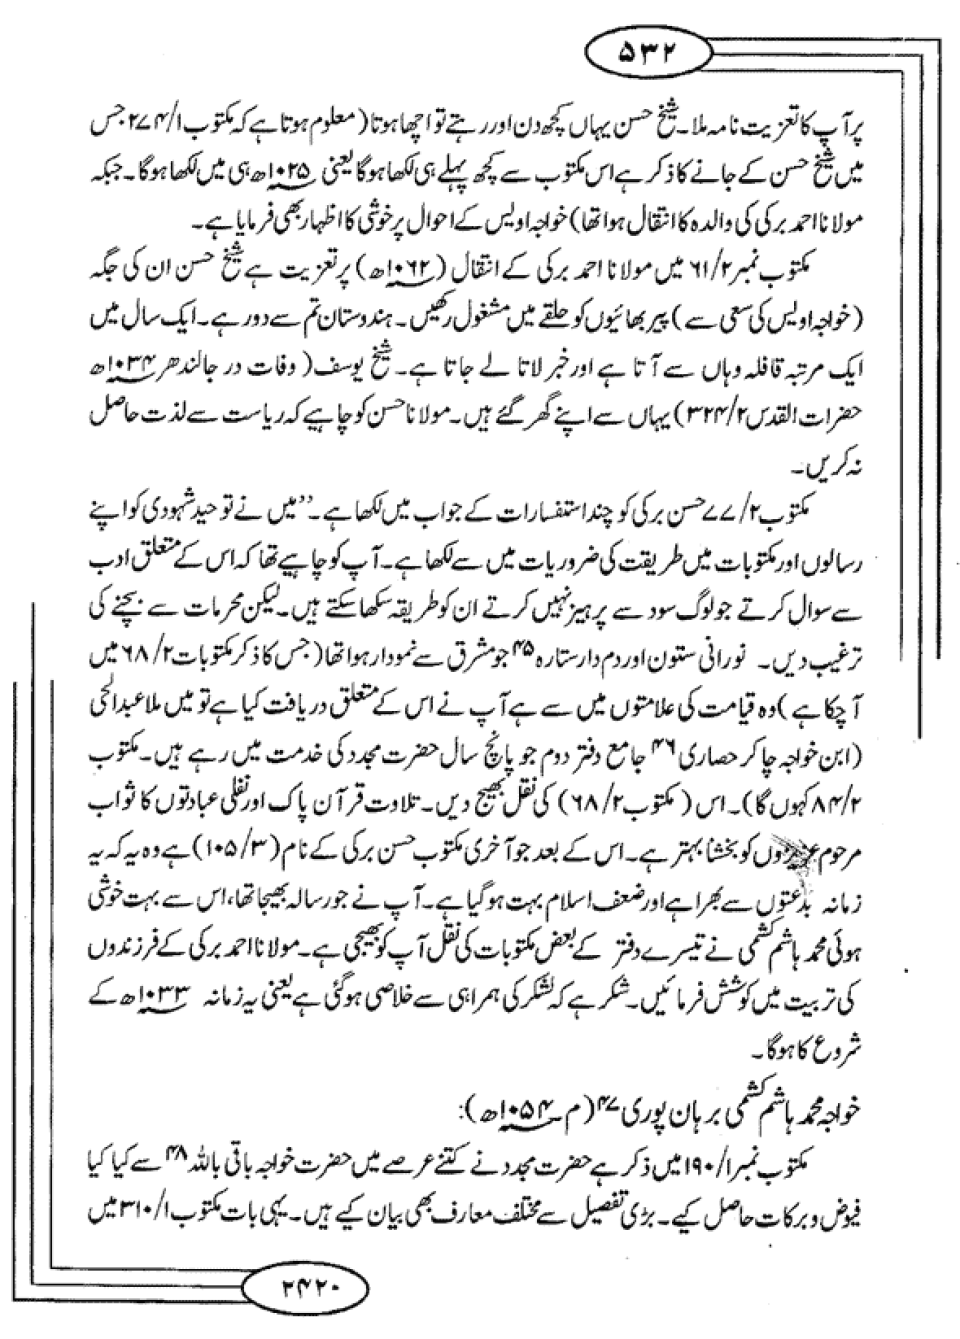 ۵۳۲
پر آپ کا تعزیت نامہ ملا۔ شیخ حسن یہاں کچھ دن اور رہتے تو اچھا ہوتا (معلوم ہوتا ہے کہ مکتوب ۲۷۴/۱ جس
میں شیخ حسن کے جانے کا ذکر ہے اس مکتوب سے کچھ پہلے ہی لکھا ہوگا یعنی ۱۰۲۵ھ ہی میں لکھا ہوگا۔ جبکہ
مولانا احمد برکی کی والدہ کا انتقال ہوا تھا) خواجہ اویس کے احوال پر خوشی کا اظہار بھی فرمایا ہے۔
مکتوب نمبر ۶۱/۲ میں مولانا احمد برکی کے انتقال (۱۰۶۲ھ) پر تعزیت ہے شیخ حسن ان کی جگہ
(خواجہ اویس کی سعی سے) پیر بھائیوں کو حلقے میں مشغول رکھیں۔ ہندوستان تم سے دور ہے۔ ایک سال میں
ایک مرتبہ قافلہ وہاں سے آتا ہے اور خبر لاتا لے جاتا ہے۔ شیخ یوسف (وفات در جالندھر ۱۰۳۴ھ
حضرات القدس ۳۲۴/۲) یہاں سے اپنے گھر گئے ہیں۔ مولانا حسن کو چاہیے کہ ریاست سے لذت حاصل
نہ کریں۔
مکتوب ۷۷/۲ حسن برکی کو چند استفسارات کے جواب میں لکھا ہے۔ ”میں نے توحید شہودی کو اپنے
رسالوں اور مکتوبات میں طریقت کی ضروریات میں سے لکھا ہے۔ آپ کو چاہیے تھا کہ اس کے متعلق ادب
سے سوال کرتے جو لوگ سود سے پرہیز نہیں کرتے ان کو طریقہ سکھا سکتے ہیں۔ لیکن محرمات سے بچنے کی
ترغیب دیں۔ نورانی ستون اور دم دار ستارہ ۴۵ جو مشرق سے نمودار ہوا تھا (جس کا ذکر مکتوبات ۶۸/۲ میں
آ چکا ہے) وہ قیامت کی علامتوں میں سے ہے آپ نے اس کے متعلق دریافت کیا ہے تو میں ملا عبدالحی
(ابن خواجہ چاکر حصاری ۴۶ جامع دفتر دوم جو پانچ سال حضرت مجدد کی خدمت میں رہے ہیں۔ مکتوب
۸۴/۲ کہوں گا)۔ اس (مکتوب ۶۸/۲) کی نقل بھیج دیں۔ تلاوت قرآن پاک اور نفلی عبادتوں کا ثواب
مرحوم عزیزوں کو بخشنا بہتر ہے۔ اس کے بعد جو آخری مکتوب حسن برکی کے نام (۱۰۵/۳) ہے وہ یہ کہ یہ
زمانہ بدعتوں سے بھرا ہے اور ضعف اسلام بہت ہوگیا ہے۔ آپ نے جو رسالہ بھیجا تھا، اس سے بہت خوشی
ہوئی محمد ہاشم کشمی نے تیسرے دفتر کے بعض مکتوبات کی نقل آپ کو بھیجی ہے۔ مولانا احمد برکی کے فرزندوں
کی تربیت میں کوشش فرمائیں۔ شکر ہے کہ لشکر کی ہمراہی سے خلاصی ہوگئی ہے یعنی یہ زمانہ ۱۰۳۳ھ کے
شروع کا ہوگا۔
خواجہ محمد ہاشم کشمی برہان پوری ۴۷ (م ۱۰۵۴ھ):
مکتوب نمبر ۱۹۰/۱ میں ذکر ہے حضرت مجدد نے کتنے عرصے میں حضرت خواجہ باقی باللہ ۴۸ سے کیا کیا
فیوض و برکات حاصل کیے۔ بڑی تفصیل سے مختلف معارف بھی بیان کیے ہیں۔ یہی بات مکتوب ۳۱۰/۱ میں
۲۴۲۰